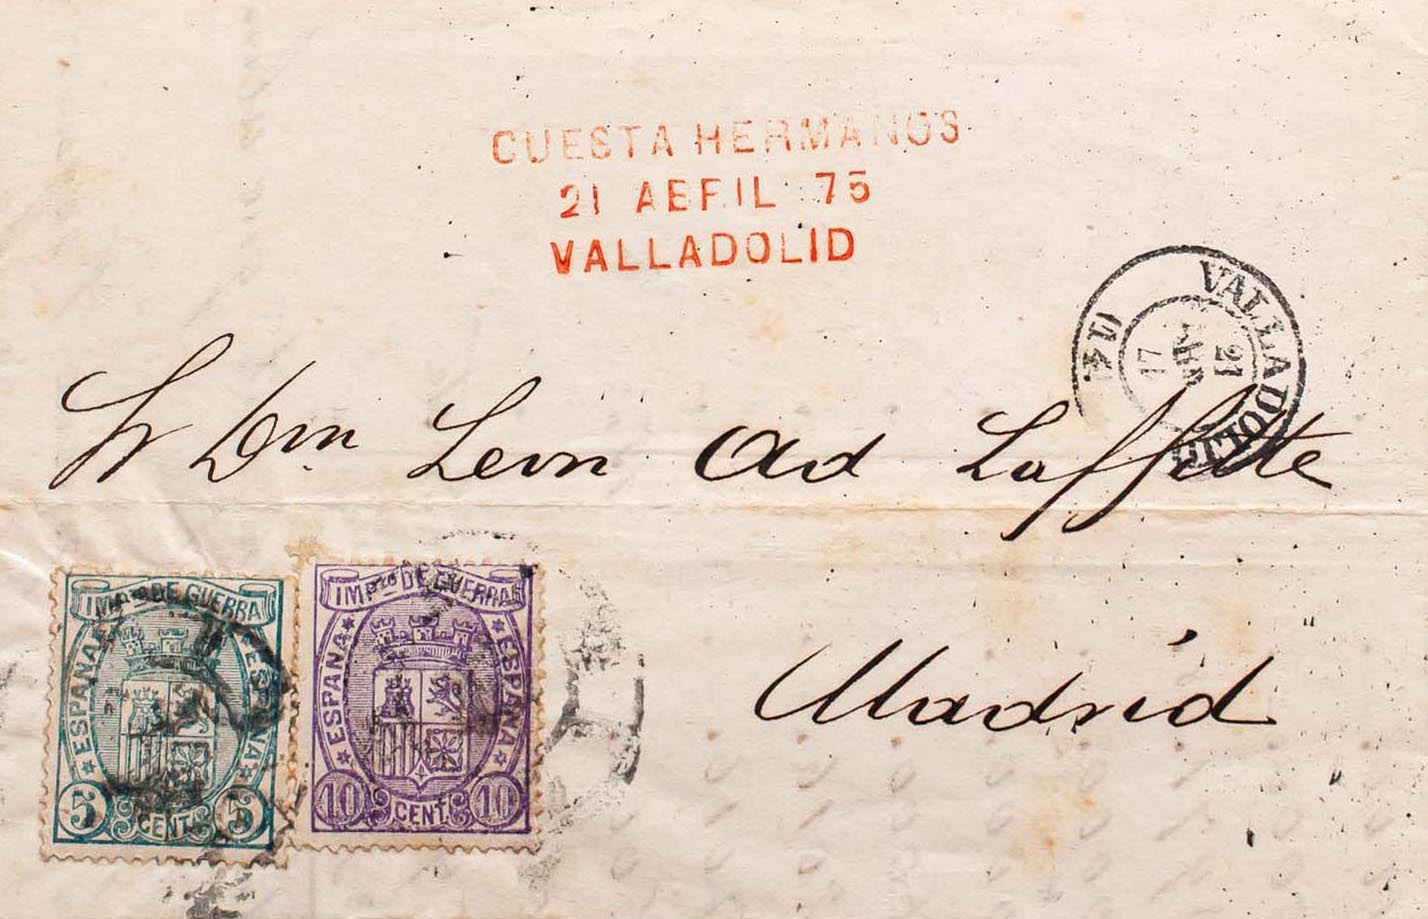 CUESTA HERMANOS
21 ABRIL 75
VALLADOLID
VALLADOLID
21
ABR
17
(14)
Sr Don Leon Ad Laffitte
Madrid
IMPto DE GUERRA
ESPAÑA
ESPAÑA
5 CENT. 5
IMPto DE GUERRA
ESPAÑA
ESPAÑA
10 CENT. 10